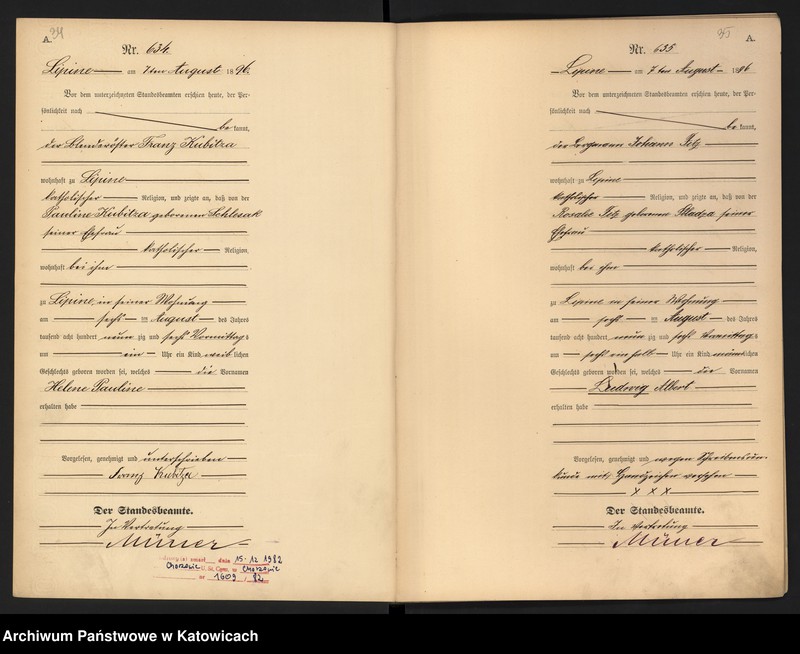 A. 34
Nr. 634.
Lipine am 7ten August 1896.
Vor dem unterzeichneten Standesbeamten erschien heute, der Per-
sönlichkeit nach
bekannt,
der Franz Kubitza
wohnhaft zu Lipine
katholischer Religion, und zeigte an, daß von der
Pauline Kubitza geborenen Schlesak
seiner Ehefrau
katholischer Religion,
wohnhaft bei ihm
zu Lipine in seiner Wohnung
am sechs ten August des Jahres
tausend acht hundert neun zig und sechs Vormittags
um ein Uhr ein Kind weiblichen
Geschlechts geboren worden sei, welches die Vornamen
Helene Pauline
erhalten habe
Vorgelesen, genehmigt und unterschrieben
Franz Kubitza
Der Standesbeamte.
In Vertretung
dnia 15.12 1982
Chorzowie U. St. Cyw. w Chorzowie
nr 1609 / 82
35 A.
Nr. 635
Lipine am 7ten August 1896
Vor dem unterzeichneten Standesbeamten erschien heute, der Per-
sönlichkeit nach
bekannt,
der Bergmann Johann
wohnhaft zu Lipine
katholischer Religion, und zeigte an, daß von der
Rosalie geborenen seiner
Ehefrau
katholischer Religion,
wohnhaft bei ihm
zu Lipine in seiner Wohnung
am sechs ten August des Jahres
tausend acht hundert neun zig und sechs Vormittags
um sechs ein halb Uhr ein Kind männlichen
Geschlechts geboren worden sei, welches die Vornamen
Albert
erhalten habe
Vorgelesen, genehmigt und wegen Schreibensun-
kunde mit Handzeichen versehen
X X X
Der Standesbeamte.
In Vertretung
Archiwum Państwowe w Katowicach